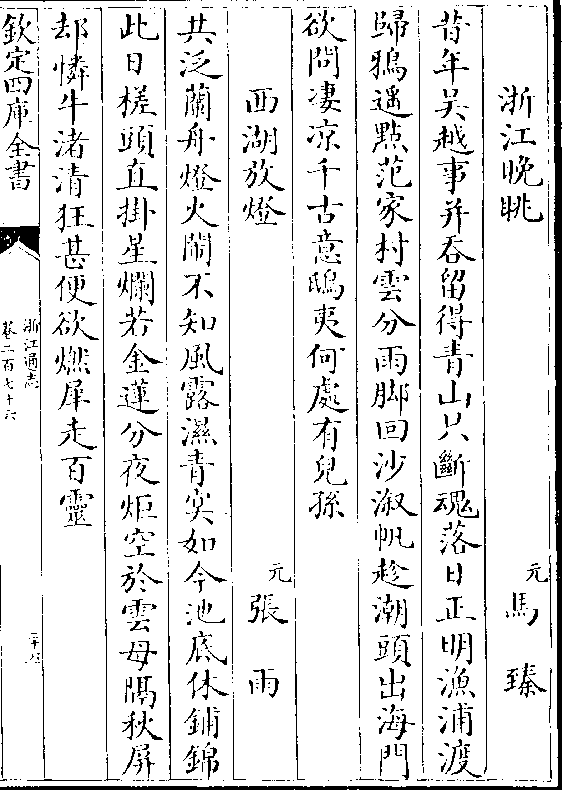 浙江晚眺
元馬臻
昔年吳越事并吞留得青山只斷魂落日正明漁浦渡
歸鴉遥㸃范家村雲分雨脚回沙溆帆趁潮頭出海門
欲問淒凉千古意鴟夷何處有兒孫
西湖放燈
元張雨
共泛蘭舟燈火鬧不知風露濕青冥如今池底休鋪錦
此日槎頭直掛星爛若金蓮分夜炬空於雲母隔秋屏
却憐牛渚清狂甚便欲燃犀走百靈
欽定四庫全書
浙江通志
卷二百七十六